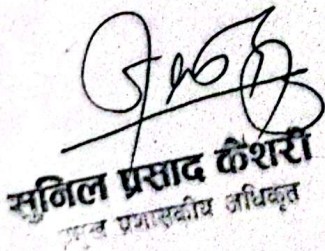 सुनिल प्रसाद केशरी
प्रमुख प्रशासकीय अधिकृत